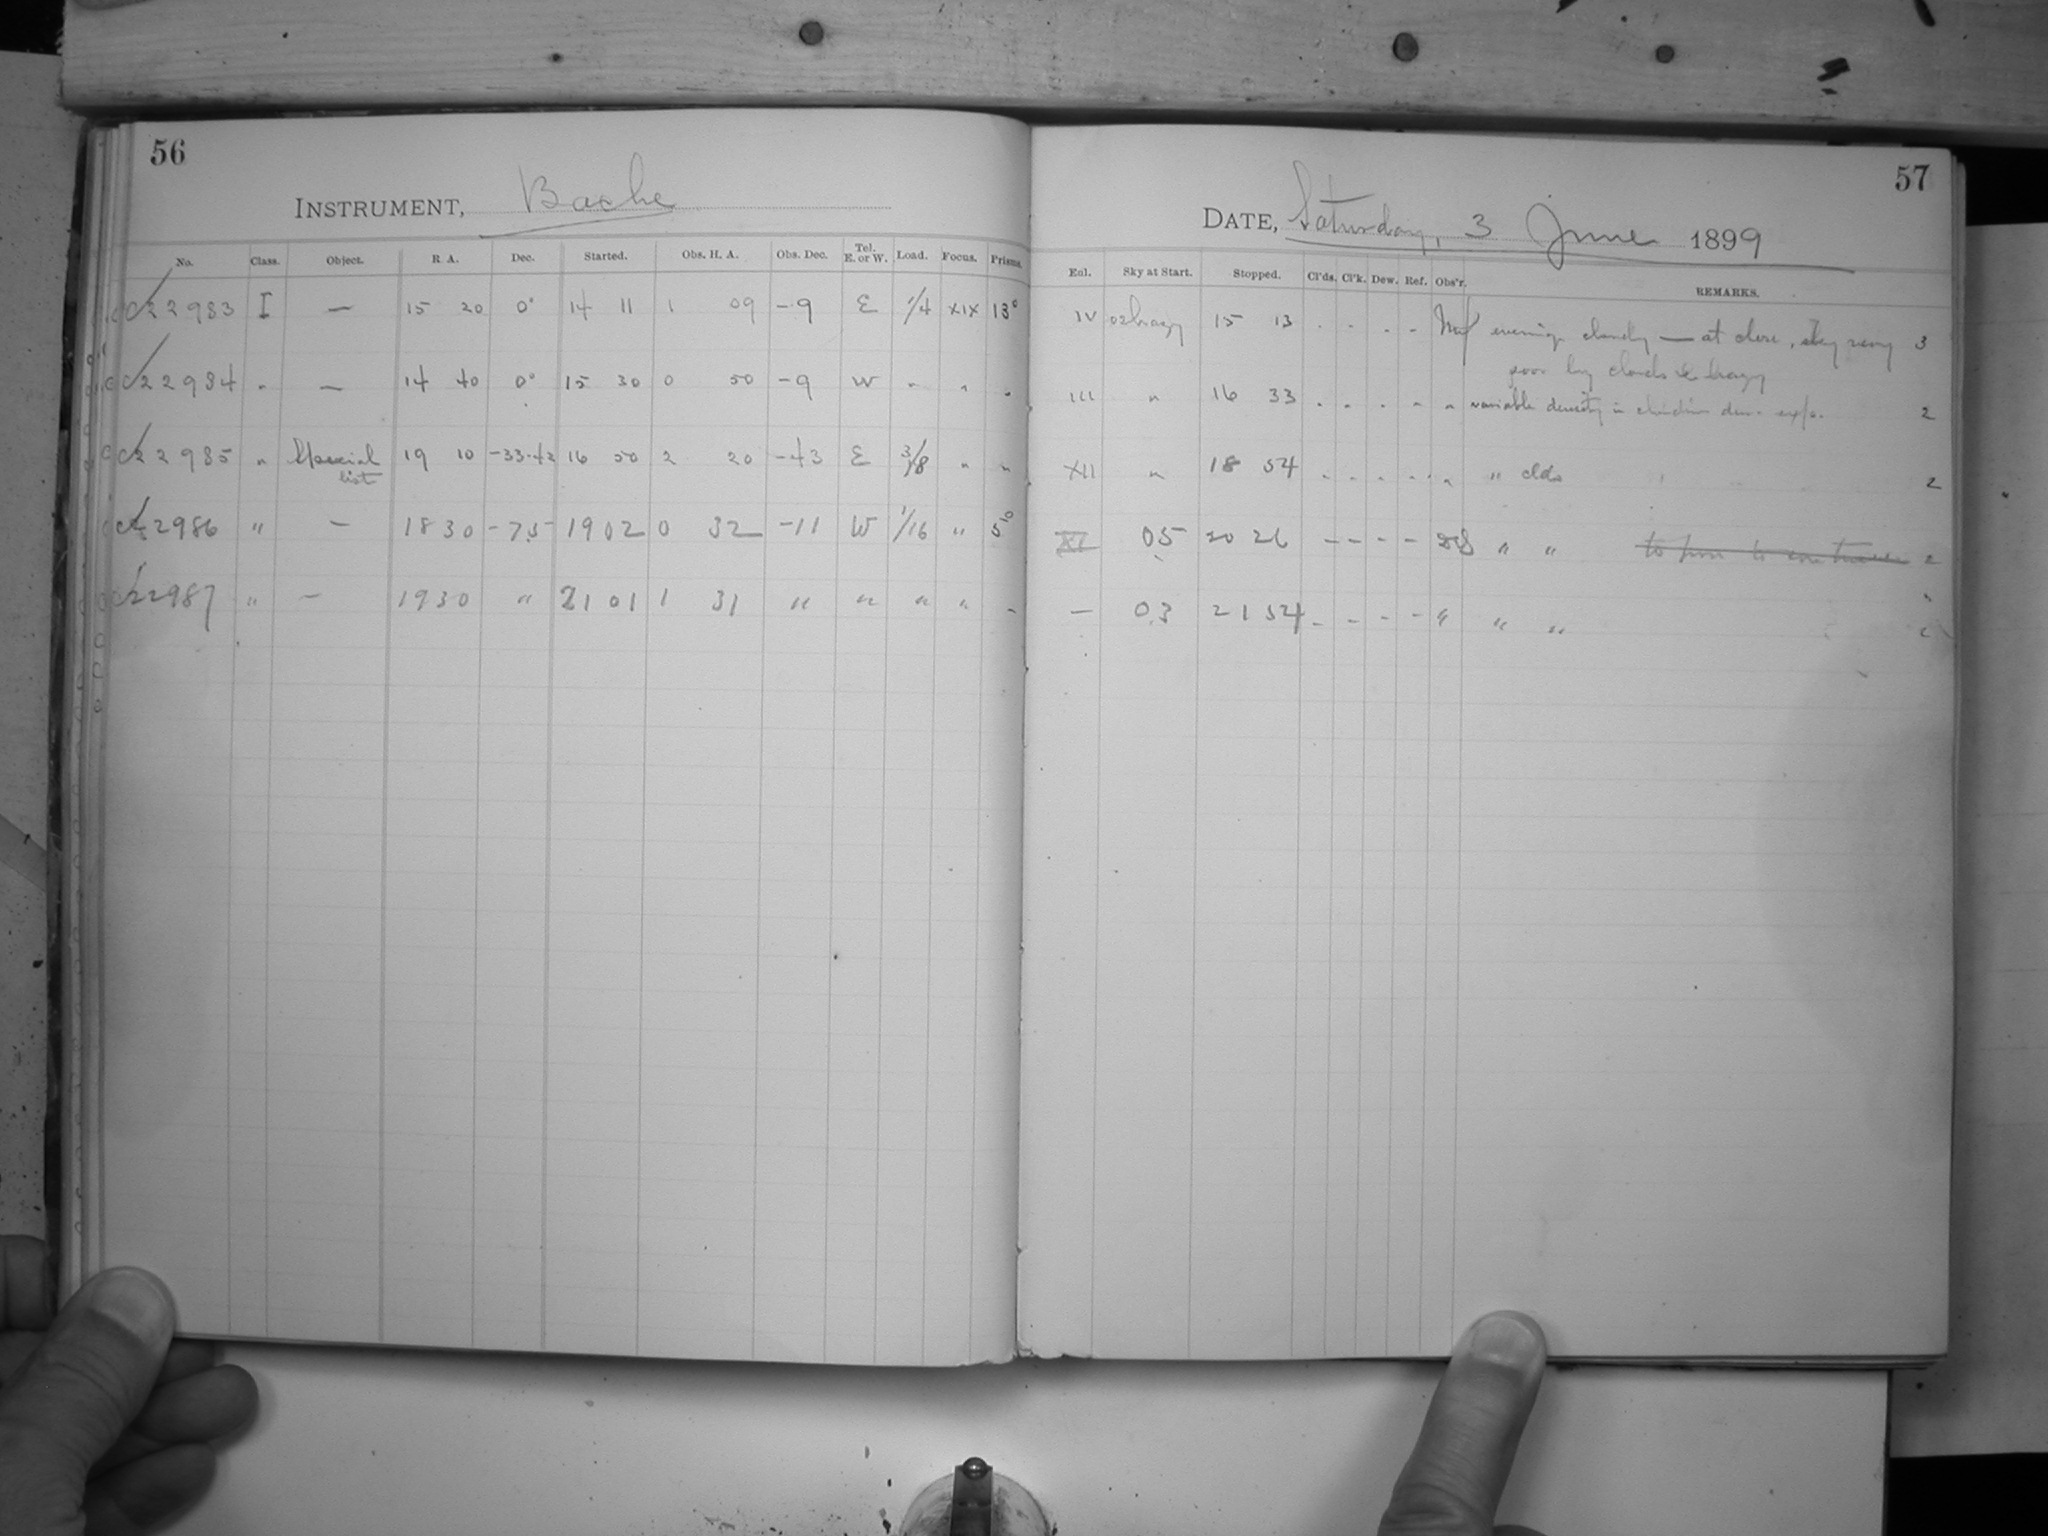 56
INSTRUMENT, Bache
No. Class. Object. R A. Dec. Started. Obs. H. A. Obs. Dec. Tel. E. or W. Load. Focus. Prisms.
22983 I — 15 20 0° 14 11 1 09 -9 E 1/4 XIX 13°
22984 " — 14 40 0° 15 30 0 50 -9 W " " "
22985 " Special list 19 10 -33.42 16 50 2 20 -43 E 3/8 " "
22986 " — 18 30 -75 19 02 0 32 -11 W 1/16 " 5°
22987 " — 19 30 " 21 01 1 31 " " " " "
57
DATE, Saturday, 3 June 1899
Enl. Sky at Start. Stopped. Cl'ds. Cl'k. Dew. Ref. Obs'r. REMARKS.
IV hazy 15 13 . . . - evening cloudy — at close, sky very 3
poor by clouds & hazy
III " 16 33 . . . - " variable density in clouds exp. 2
XII " 18 54 . . . . " " clds 2
XI 05 20 26 - - - - " " 2
— 03 21 54 - - - - " " " 2